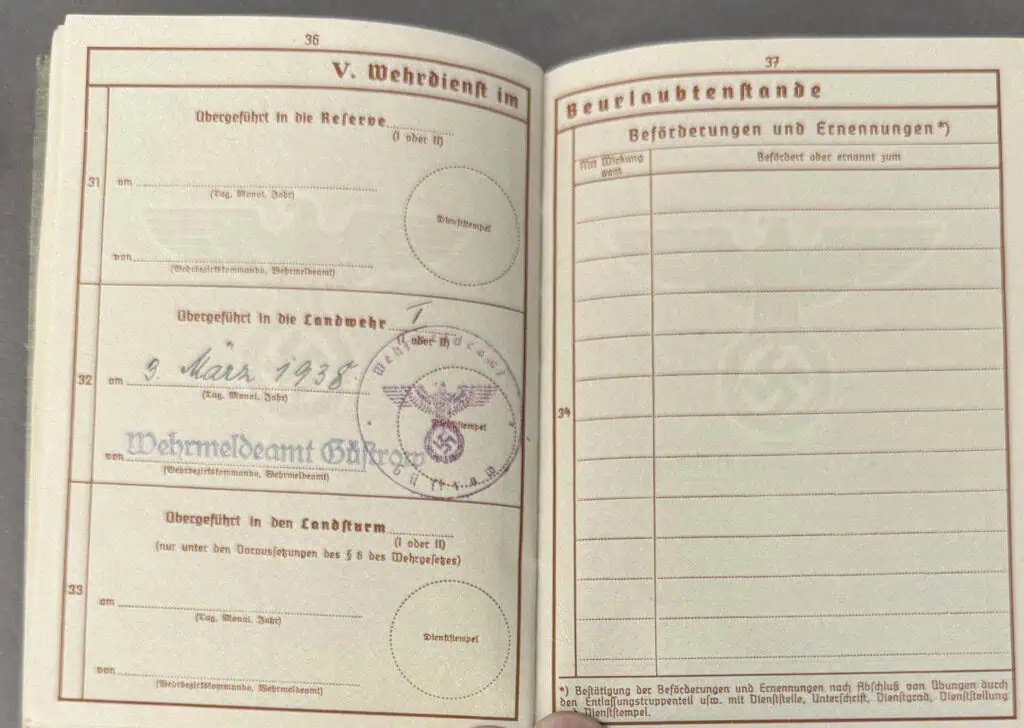 36
V. Wehrdienst im
Übergeführt in die Reserve
(I oder II)
31
am
(Tag, Monat, Jahr)
Dienststempel
von
(Wehrbezirkskommando, Wehrmeldeamt)
Übergeführt in die Landwehr I
(I oder II)
32
am 9 März 1938
(Tag, Monat, Jahr)
Wehrmeldeamt
Dienststempel
Güstrow
von Wehrmeldeamt Güstrow
(Wehrbezirkskommando, Wehrmeldeamt)
Übergeführt in den Landsturm
(I oder II)
(nur unter den Voraussetzungen des § 6 des Wehrgesetzes)
33
am
(Tag, Monat, Jahr)
Dienststempel
von
(Wehrbezirkskommando, Wehrmeldeamt)
37
Beurlaubtenstande
Beförderungen und Ernennungen*)
Mit Wirkung
vom
Befördert oder ernannt zum
34
*) Bestätigung der Beförderungen und Ernennungen nach Abschluß von Übungen durch
den Entlassungstruppenteil usw. mit Dienststelle, Unterschrift, Dienstgrad, Dienststellung
Dienststempel.